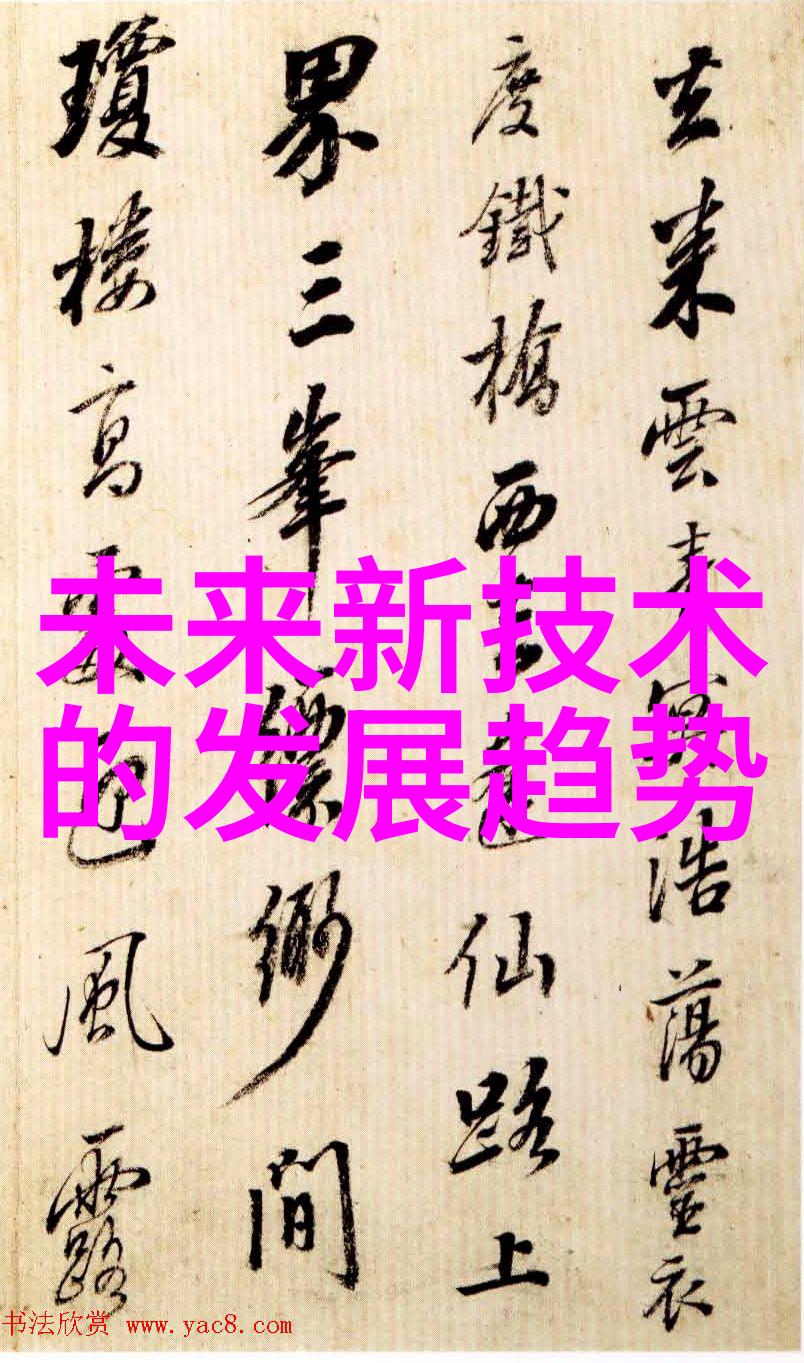 雲浩蕩靈衣
度鐵橋西仙路上
界三峯縹緲間
瓊樓高處風露
未来新技术
的发展趋势
书法欣赏 www.yac8.com